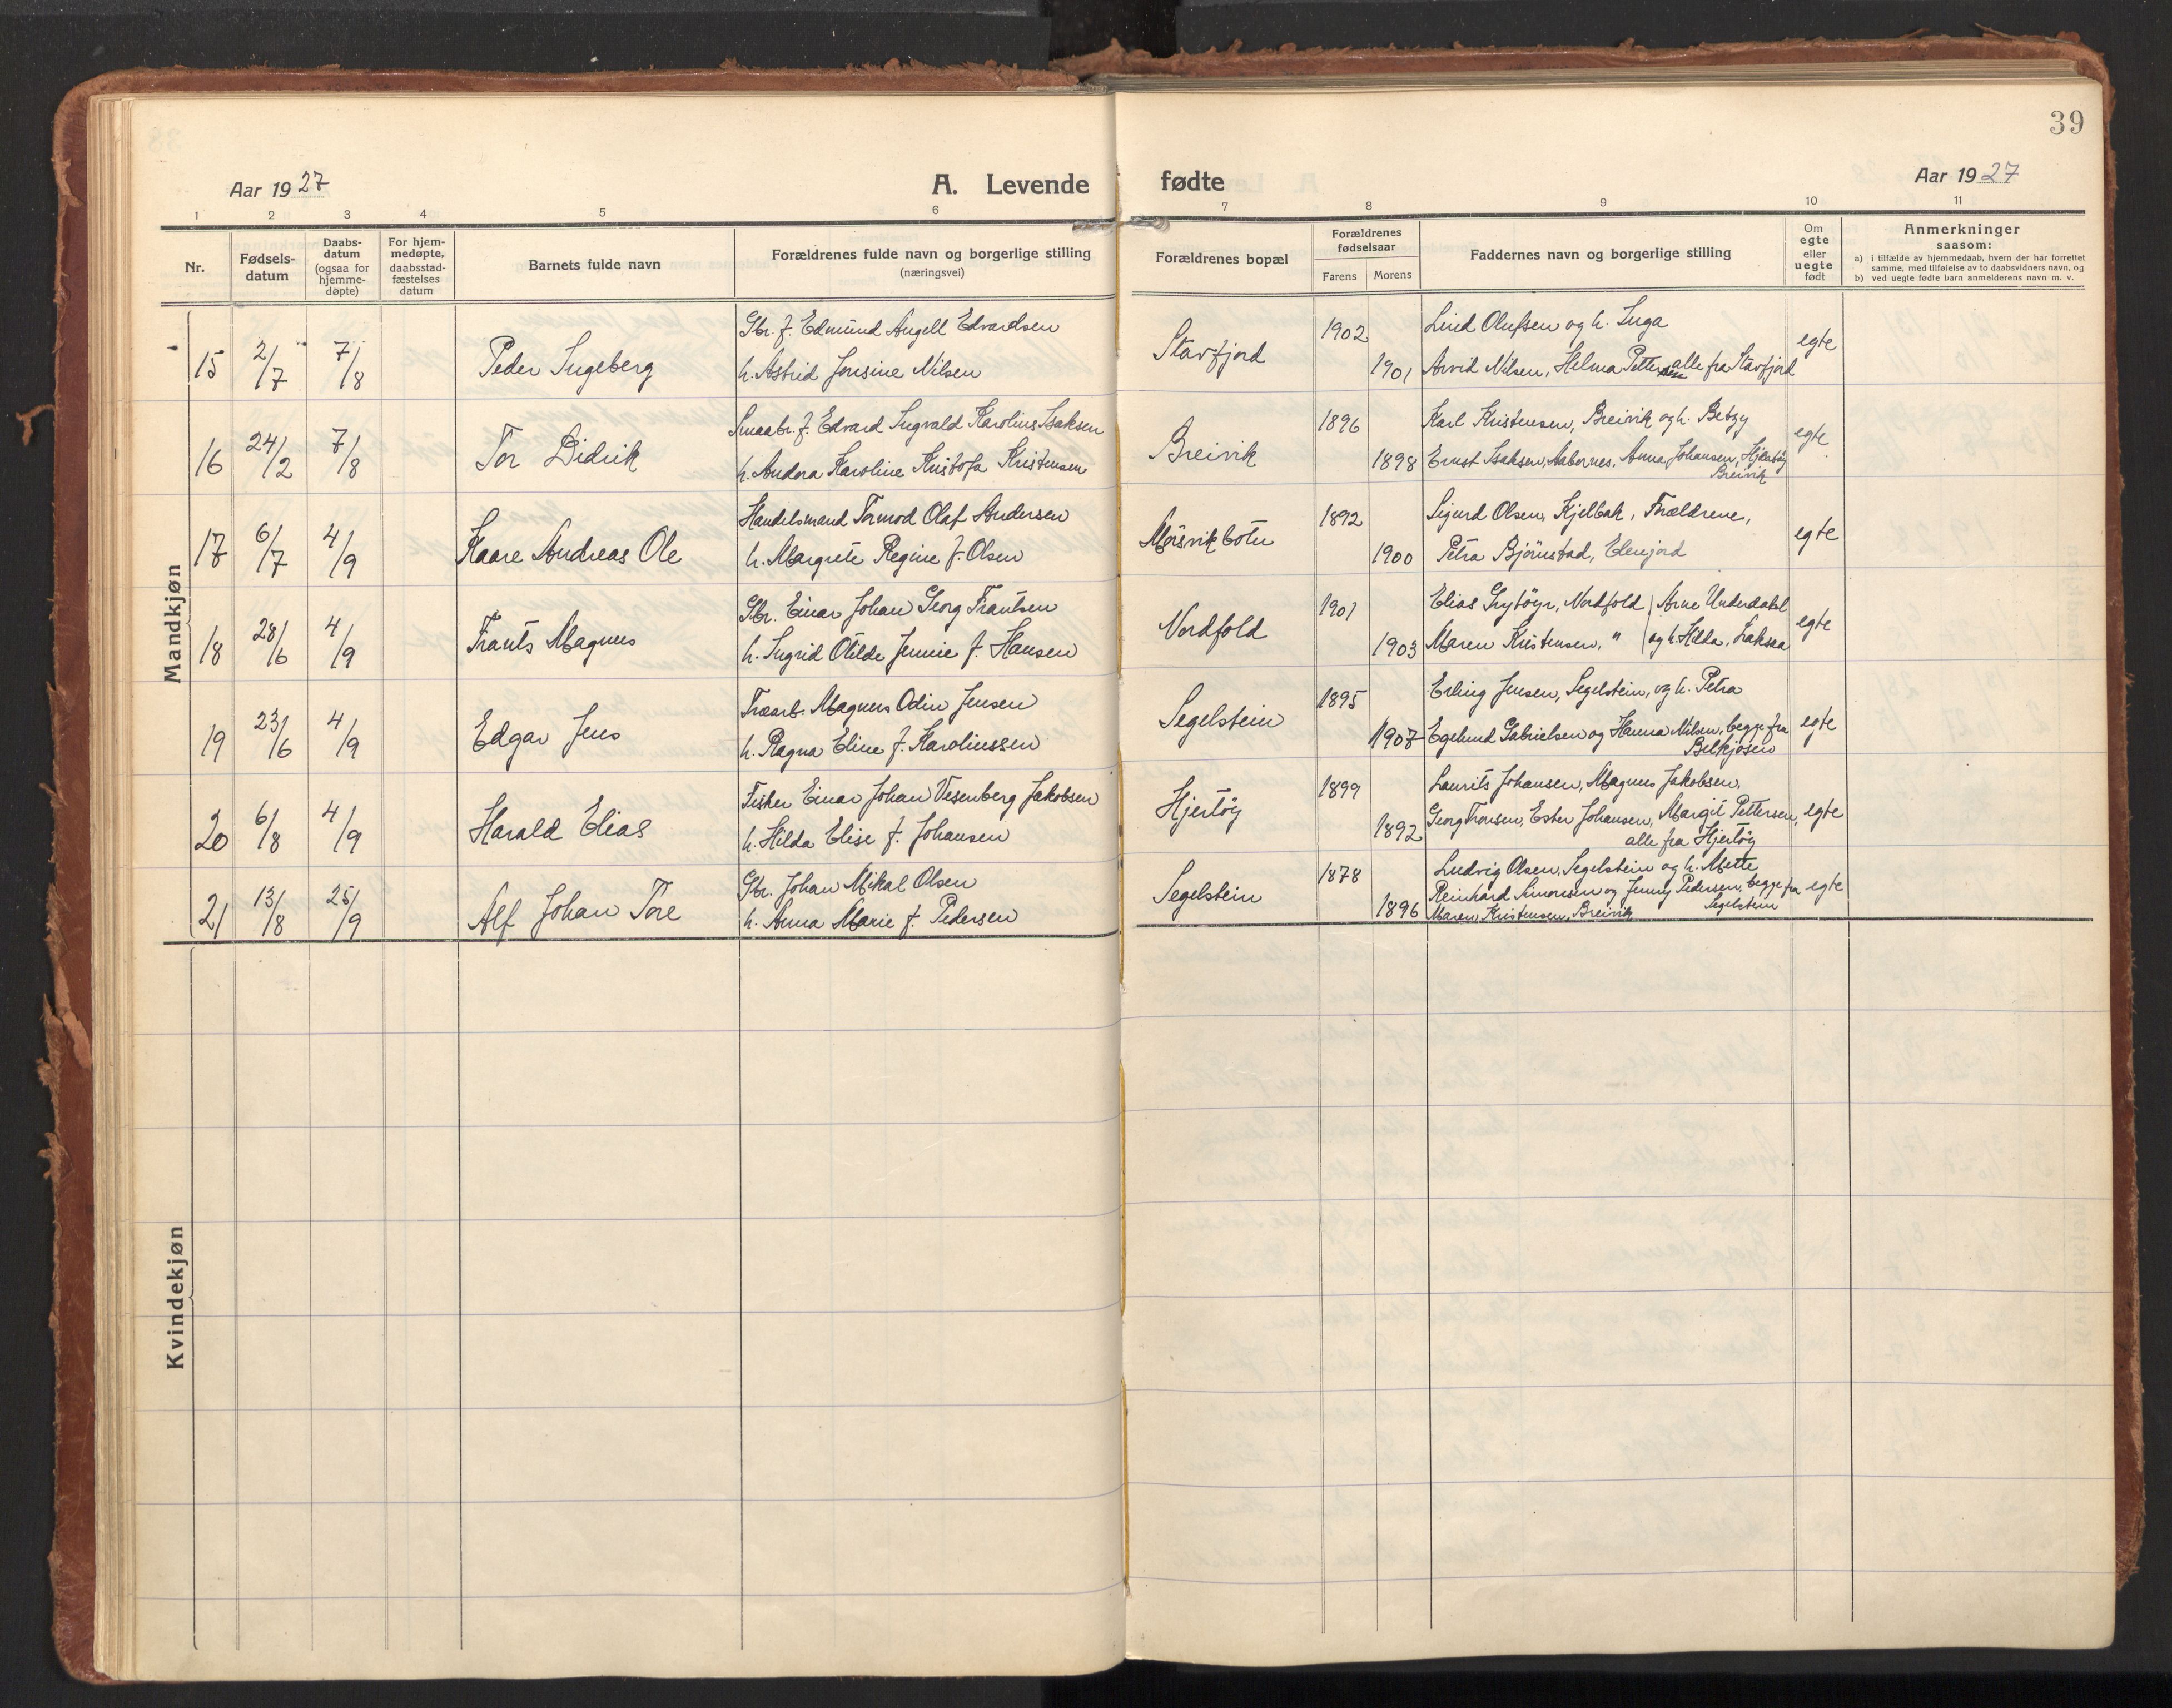 39
Aar 1927 A. Levende fødte Aar 1927
1 2 3 4 5 6 7 8 9 10 11
Nr.
Fødsels-
datum
Daabs-
datum
(ogsaa for
hjemme-
døpte)
For hjem-
medøpte,
daabsstad-
fæstelses
datum
Barnets fulde navn
Forældrenes fulde navn og borgerlige stilling
(næringsvei)
Forældrenes bopæl
Forældrenes
fødselsaar
Farens Morens
Faddernes navn og borgerlige stilling
Om
egte
eller
uegte
født
Anmerkninger
saasom:
a) i tilfælde av hjemmedaab, hvem der har forrettet
samme, med tilføielse av to daabsvidners navn, og
b) ved uegte fødte barn anmelderens navn m. v.
Mandkjøn
15 2/7 7/8 Peder Ingeberg
Gbr. f. Edmund Angell Edvardsen
h. Astrid Jensine Nilsen
Stavfjord 1902 1901
Lind Olufsen og h. Inga
Arvid Nilsen, Helma Pettersen alle fra Stavfjord
egte
16 24/2 7/8 Tor Didrik
Smaabr. f. Edvard Ingvald Karolius Isaksen
h. Andora Karoline Kristofa Kristensen
Breivik 1896 1898
Karl Kristensen, Breivik og h. Betzy
Ernst Isaksen, Aabornes, Anna Johansen, Hjertøy
Breivik
egte
17 6/7 4/9 Kaare Andreas Ole
Handelsmand Tormod Olaf Andersen
h. Margrete Regine f. Olsen
Mørsvikbotn 1892 1900
Sigurd Olsen, Kjelbak, Forældrene,
Petra Bjørnstad, Elvejord
egte
18 28/6 4/9 Frants Magnus
Gbr. Einar Johan Georg Frantsen
h. Ingrid Otilde Jennie f. Hansen
Nordfold 1901 1903
Elias Grytøyr, Nordfold | Arne Underdahl
Maren Kristensen, " | og h. Hilda, Laksaa
egte
19 23/6 4/9 Edgar Jens
Træarb. Magnus Odin Jensen
h. Ragna Eline f. Karolinssen
Segelstein 1895 1907
Erling Jensen, Segelstein, og h. Petra
Egelund Gabrielsen og Hanna Nilsen, begge fra
Belkjosen
egte
20 6/8 4/9 Harald Elias
Fisker Einar Johan Vesenberg Jakobsen
h. Hilda Elise f. Johansen
Hjertøy 1899 1892
Laurits Johansen, Magnus Jakobsen,
Georg Tronsen, Ester Johansen, Margit Pettersen,
alle fra Hjertøy
egte
21 13/8 25/9 Alf Johan Tore
Gbr. Johan Mikal Olsen
h. Anna Marie f. Pedersen
Segelstein 1878 1896
Ludvig Olsen, Segelstein og h. Mette
Reinhard Simonsen og Jenny Pedersen, begge fra
Segelstein
Maren Kristensen, Breivik
egte
Kvindekjøn